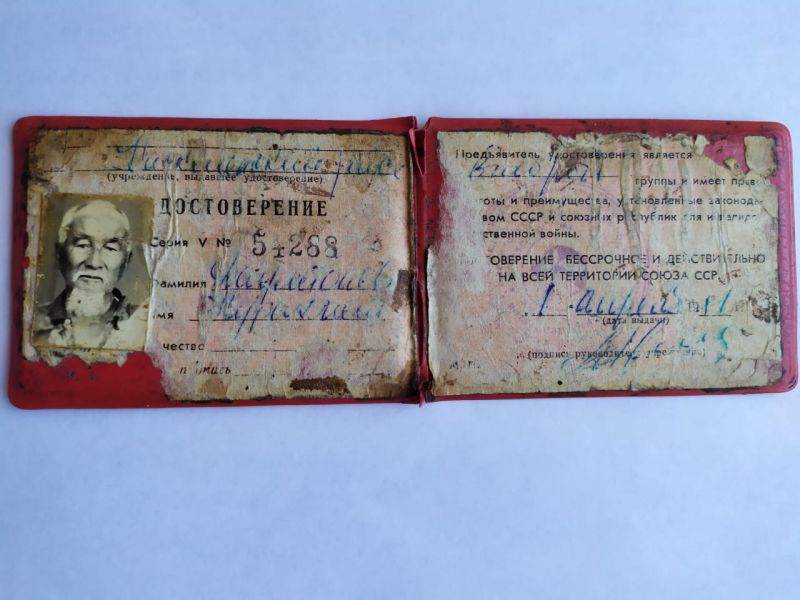 (учреждение, выдавшее удостоверение)
ДОСТОВЕРЕНИЕ
Серия V № 54288
Фамилия
мя
чество
п пись
Предъявитель удостоверения является
второй группы и имеет прав
оты и преимущества, установленные законода
вом СССР и союзных республик для инвалид
ственной войны.
ОВЕРЕНИЕ БЕССРОЧНОЕ И ДЕЙСТВИТЕЛЬНО
НА ВСЕЙ ТЕРРИТОРИИ СОЮЗА ССР.
1 апреля 1981
(дата выдачи)
(подпись руководителя учреждения)